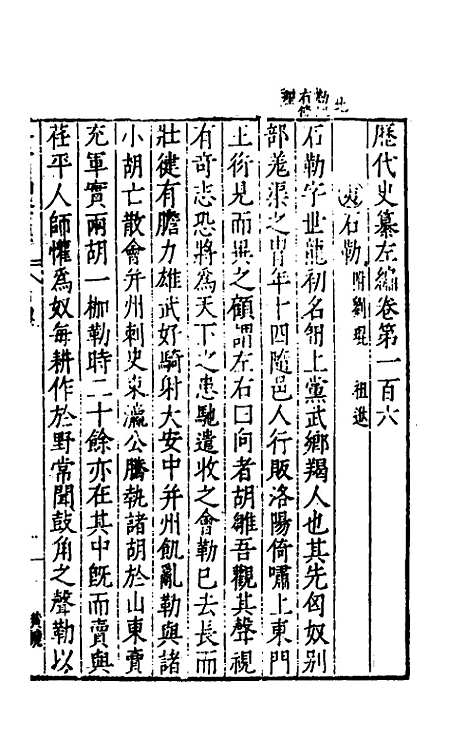 歷代史纂左編卷第一百六
石勒 附劉琨 祖逖
石勒字世龍初名㔨上黨武鄉羯人也其先匈奴別
部羌渠之胄年十四隨邑人行販洛陽倚嘯上東門
王衍見而異之顧謂左右曰向者胡雛吾觀其聲視
有奇志恐將爲天下之患馳遣收之會勒已去長而
壯健有膽力雄武好騎射大安中并州飢亂勒與諸
小胡亡散會并州刺史東瀛公騰執諸胡於山東賣
充軍實兩胡一枷勒時二十餘亦在其中旣而賣與
茌平人師懽爲奴每耕作於野常聞鼓角之聲勒以